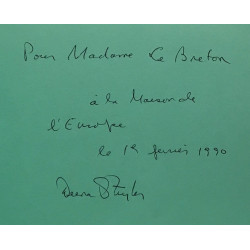 Pour Madame Le Breton
à la Maison de
l'Europe
le 1er février 1990